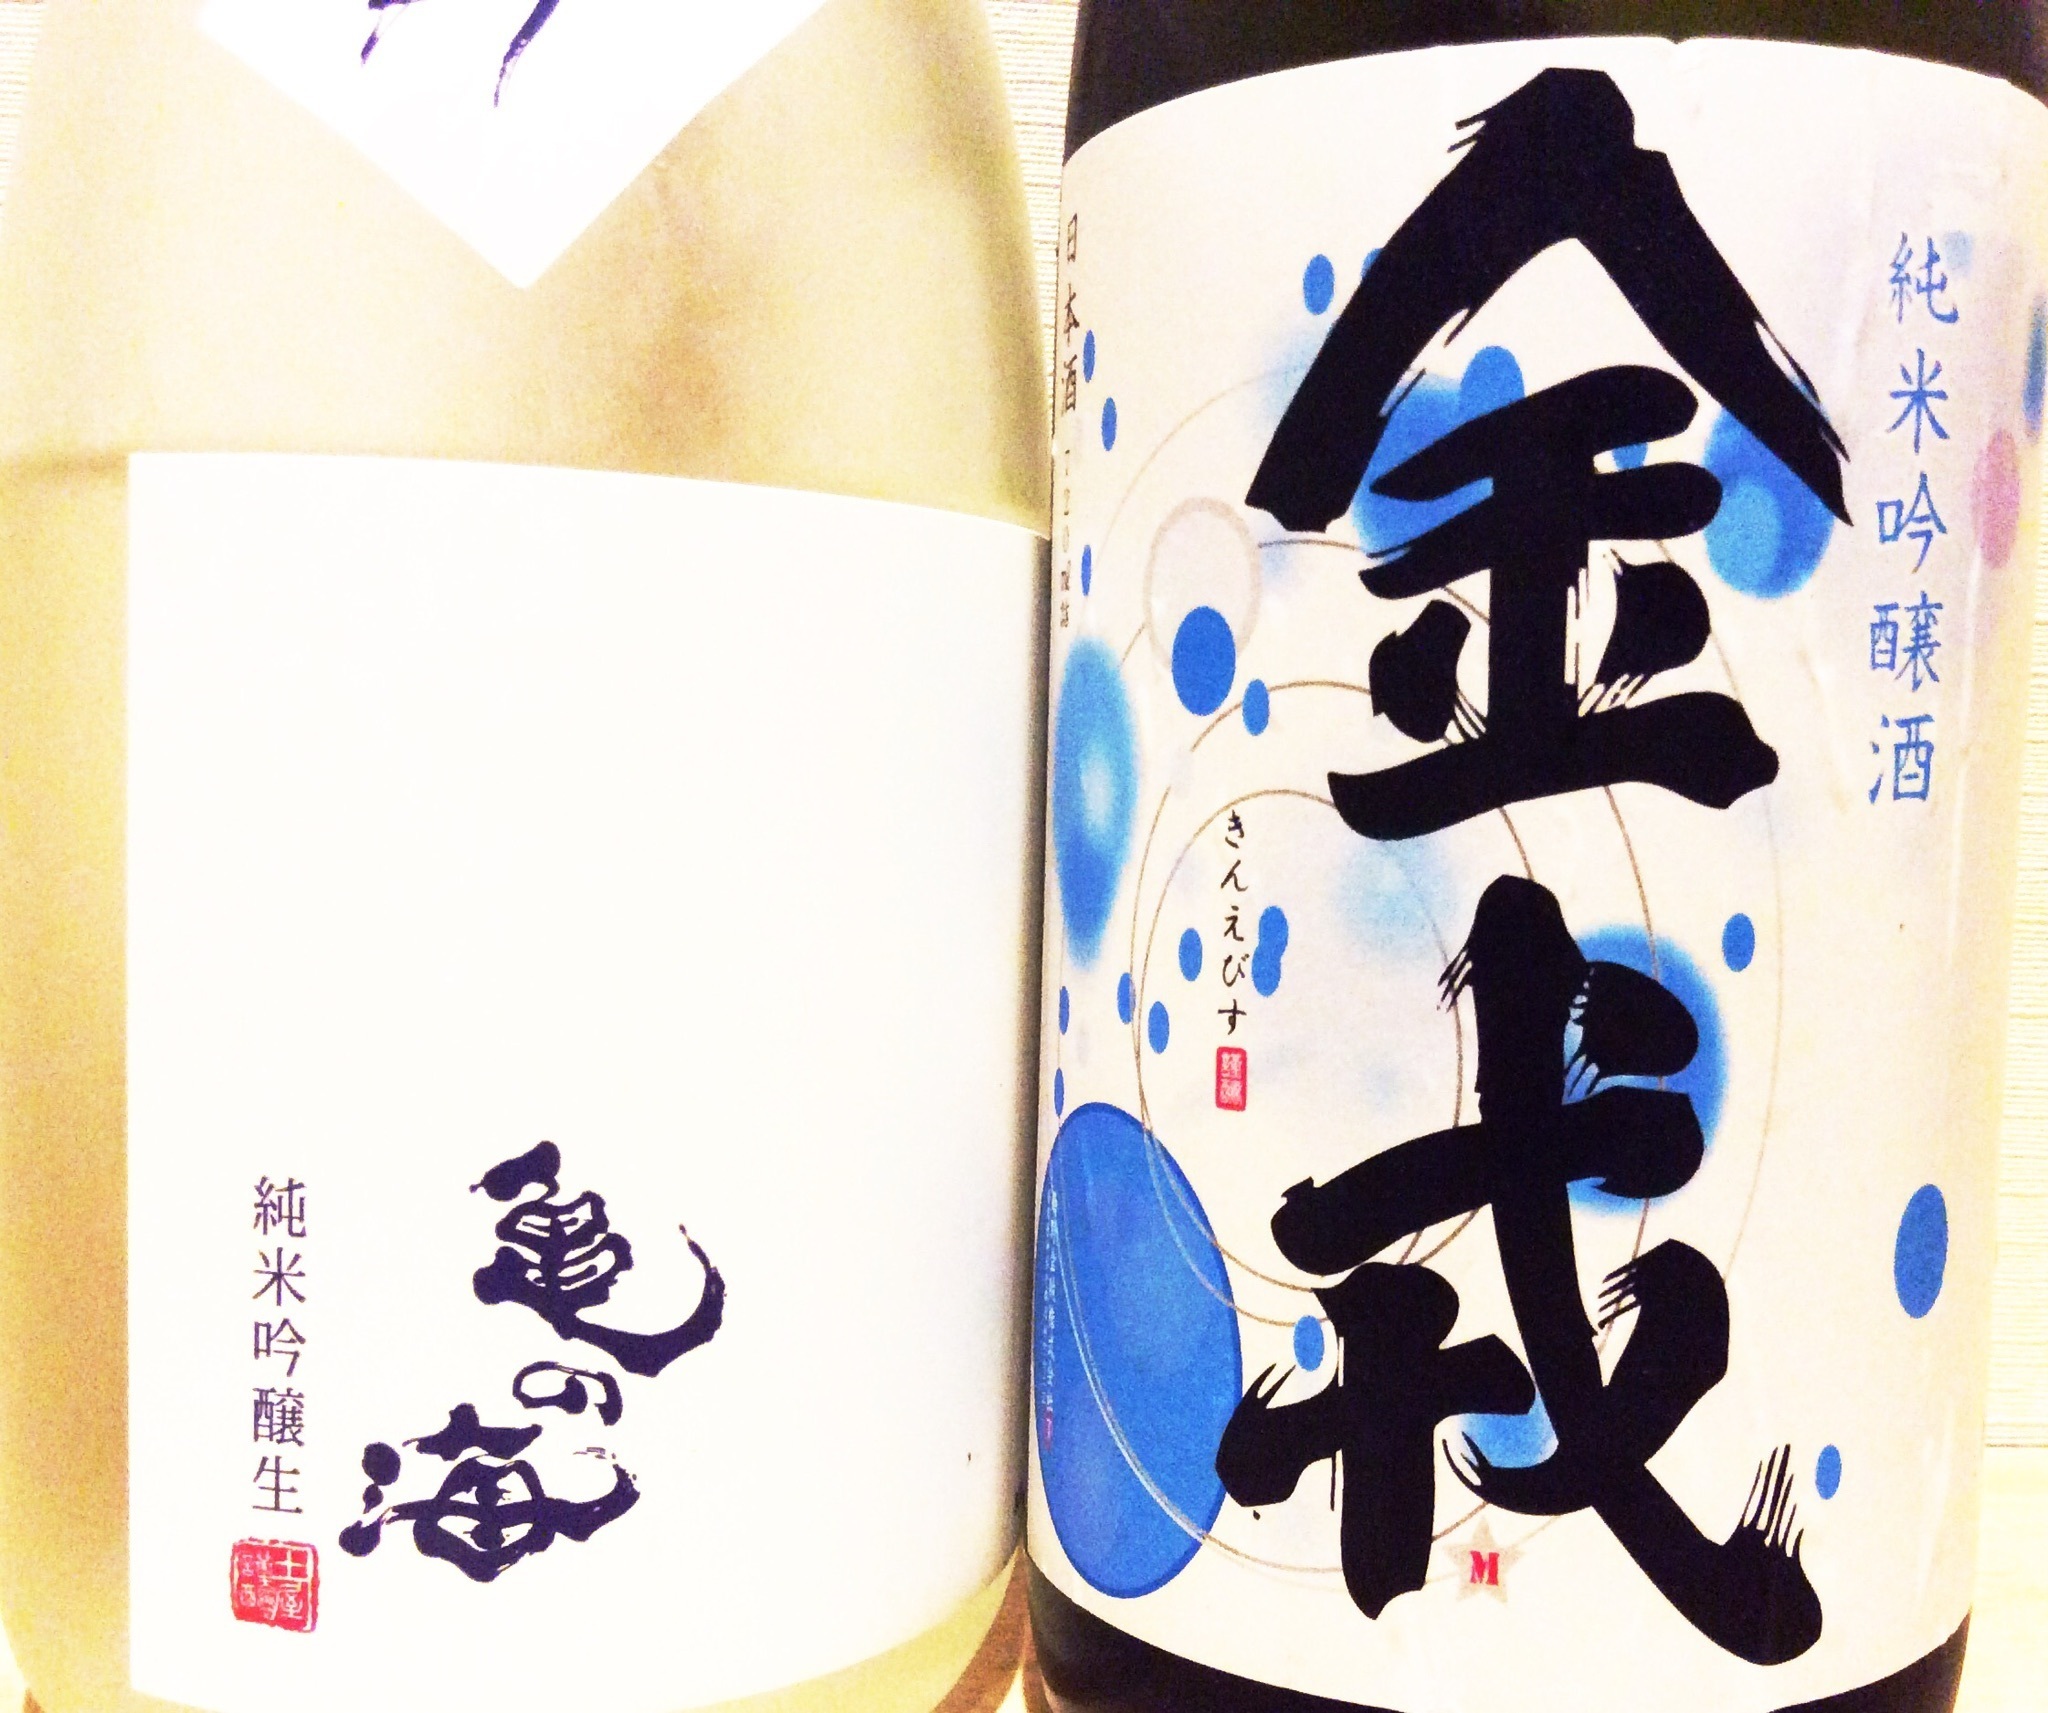 亀の海
純米吟醸生
土屋
純米吟醸酒
金戎
きんえびす
謹醸
日本酒 720
M